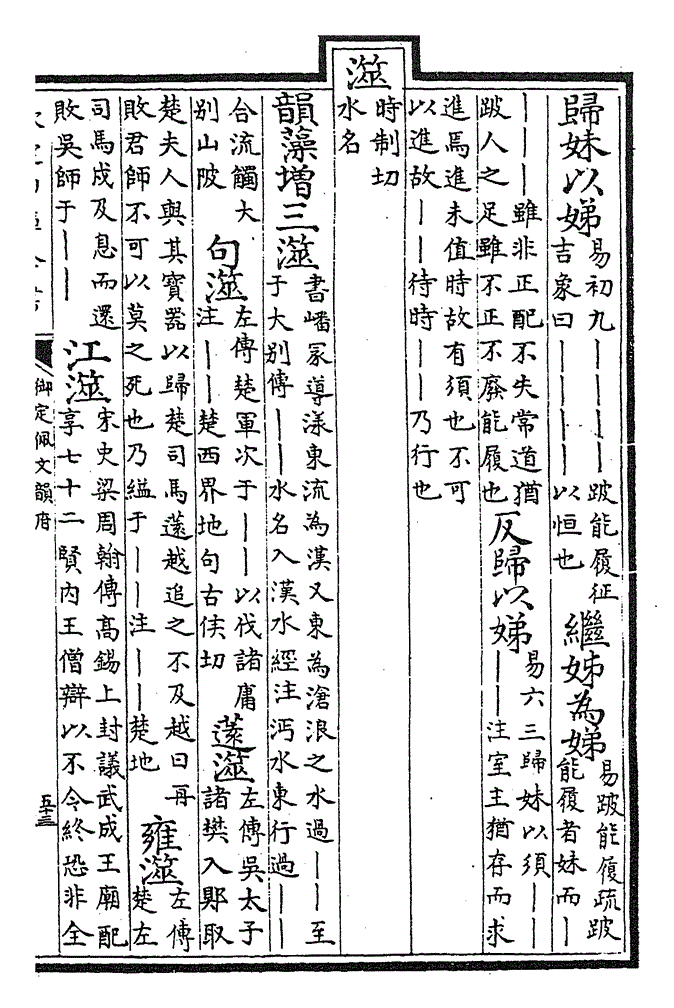 歸妹以娣
易初九丨丨丨丨跛能履征
吉象曰丨丨丨丨以恒也
繼姊為娣
易跛能履疏跛
能履者妹而丨
丨丨丨雖非正配不失常道猶
跛人之足雖不正不廢能履也
反歸以娣
易六三歸妹以須丨丨
丨丨注室主猶存而求
進焉進未值時故有須也不可
以進故丨丨待時丨丨乃行也
澨
時制切
水名
韻藻增三澨
書嶓冢導漾東流為漢又東為滄浪之水過丨丨至
于大别傳丨丨水名入漢水經注沔水東行過丨丨
合流觸大
别山陂
句澨
左傳楚軍次于丨丨以伐諸庸
注丨丨楚西界地句古侯切
薳澨
左傳吳太子
諸樊入郹取
楚夫人與其寶器以歸楚司馬薳越追之不及越曰再
敗君師不可以莫之死也乃縊于丨丨注丨丨楚地
雍澨
左傳
楚左
司馬戌及息而還
敗吳師于丨丨
江澨
宋史梁周翰傳髙錫上封議武成王廟配
享七十二賢内王僧辯以不令終恐非全
御定佩文韻府
五十三